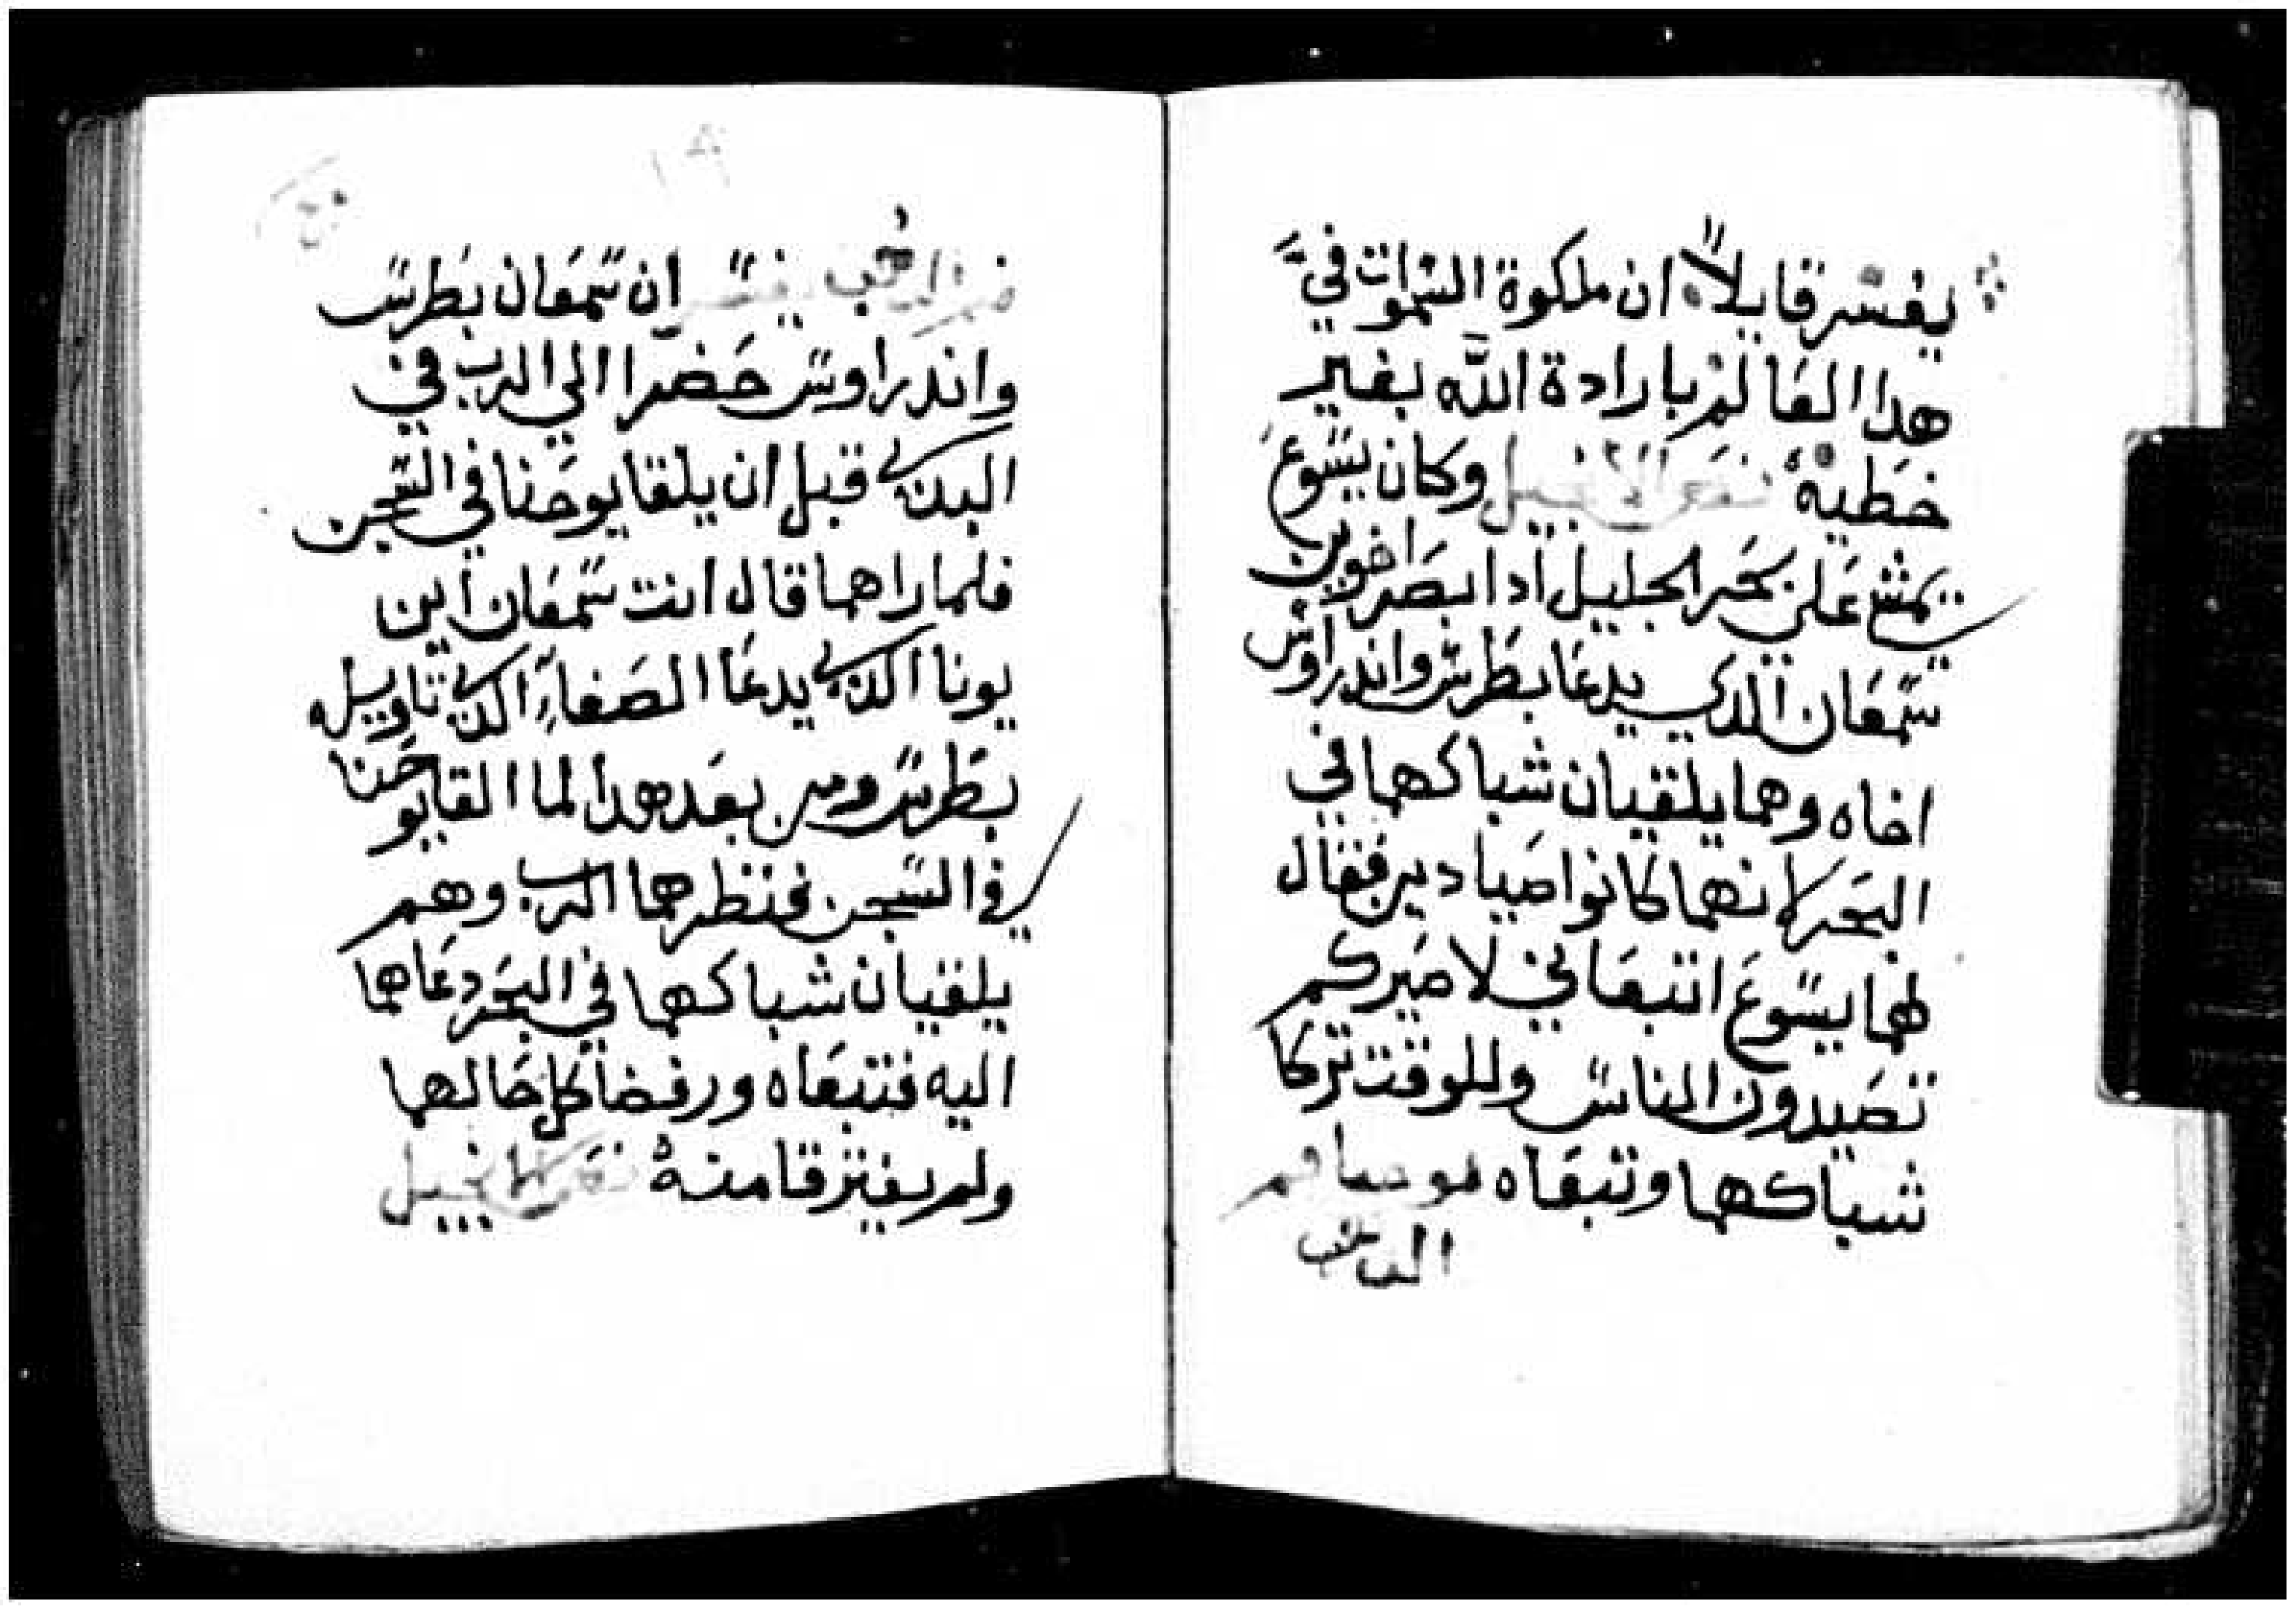 يفسر قايلاً ان ملكوة السموات في
هدا العالم بارادة الله بغير
خطية نص الانجيل وكان يسوع
يتمشى على بحر الجليل ادا ابصر اخوين
سمعان الدي يدعا بطرس واندراوس
اخاه وهما يلقيان شباكهما في
البحر لانهما كانوا صيادين فقال
لهما يسوع اتبعاني لاصيركم
تصيدون الناس وللوقت تركا
شباكهما وتبعاه
الدهب
١٩
الدهب يفسر ان سمعان بطرس
واندراوس حضرا الي الرب في
البدي قبل ان يلقا يوحنا في السجن
فلما راهما قال انت سمعان ابن
يونا الدي يدعا الصفاء الدي تاويله
بطرس ومن بعد هدا لما القا يوحنا
في السجن فنظرهما الرب وهم
يلقيان شباكهما في البحر دعاهما
اليه فتبعاه ورفضا كل حالهما
ولم يفترقا منه نص الانجيل